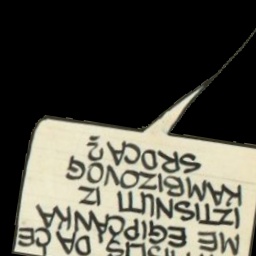 DA ĆE
ME EGIPČANKA
IZTISNUTI IZ
KAMBIZOVOG
SRDCA?